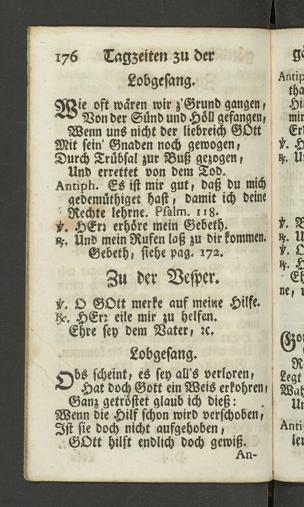 176 Tagzeiten zu der
Lobgesang.
Wie oft wären wir z'Grund gangen,
Von der Sünd und Höll gefangen,
Wenn uns nicht der liebreich GOtt
Mit sein' Gnaden noch gewogen,
Durch Trübsal zur Buß gezogen,
Und errettet von dem Tod.
Antiph. Es ist mir gut, daß du mich
gedemüthiget hast, damit ich deine
Rechte lehrne. Psalm. 118.
℣. HErr erhöre mein Gebeth.
℟. Und mein Rufen laß zu dir kommen.
Gebeth, siehe pag. 172.
Zu der Vesper.
℣. O GOtt merke auf meine Hilfe.
℟. HErr eile mir zu helfen.
Ehre sey dem Vater, ꝛc.
Lobgesang.
Obs scheint, es sey all's verloren,
Hat doch Gott ein Weis erkohren,
Ganz getröstet glaub ich dieß:
Wenn die Hilf schon wird verschoben,
Ist sie doch nicht aufgehoben,
GOtt hilft endlich doch gewiß.
An-